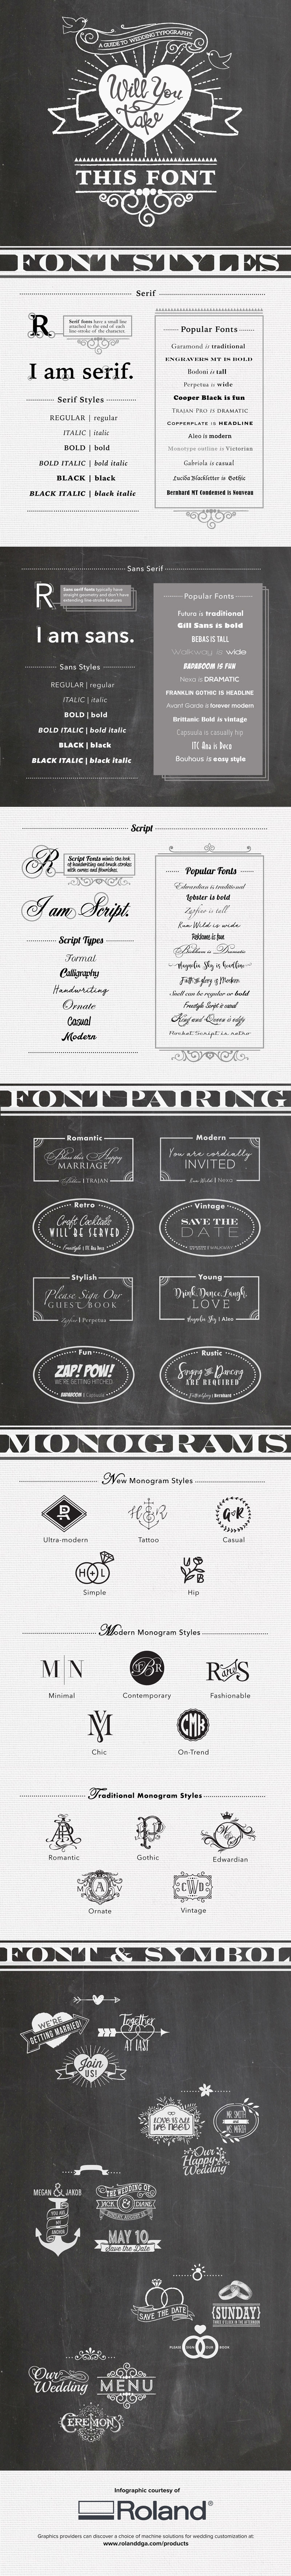 A GUIDE TO WEDDING TYPOGRAPHY
Will You
take
THIS FONT
FONT STYLES
Serif
R
Serif fonts have a small line
attached to the end of each
letter
I am serif.
Serif Styles
REGULAR | regular
ITALIC | italic
BOLD | bold
BOLD ITALIC | bold italic
BLACK | black
BLACK ITALIC | black italic
Popular Fonts
Garamond is traditional
ENGRAVERS MT IS BOLD
Bodoni is tall
Perpetua is wide
Cooper Black is fun
TRAJAN PRO IS DRAMATIC
COPPERPLATE IS HEADLINE
Aleo is modern
Monotype outline is Victorian
Gabriola is casual
Lucida Blackletter is Gothic
Bernhard MT Condensed is Nouveau
Sans Serif
R
Sans serif fonts typically have
straight geometry and don't have
extending low-stroke features.
I am sans.
Sans Styles
REGULAR | regular
ITALIC | italic
BOLD | bold
BOLD ITALIC | bold italic
BLACK | black
BLACK ITALIC | black italic
Popular Fonts
Futura is traditional
Gill Sans is bold
BEBAS IS TALL
Walkway is wide
BADABOOM IS FUN
Nexa is DRAMATIC
FRANKLIN GOTHIC IS HEADLINE
Avant Garde is forever modern
Brittanic Bold is vintage
Capsuula is casually hip
ITC Ana is Deco
Bauhaus is easy style
Script
R
Script Fonts mimic the look
of handwriting and brush strokes
with curves and flourishes.
I am Script.
Script Types
Formal
Calligraphy
Handwriting
Ornate
Casual
Modern
Popular Fonts
Edwardian is traditional
Lobster is bold
Zapfino is tall
Run Wild is wide
is fun
is Dramatic
Magnolia Sky is headline
Faith & glory is Modern
Snell can be regular or bold
Freestyle Script is casual
King and Queen is edgy
Rocket Script is retro
FONT PAIRING
Romantic
Bless this Happy
MARRIAGE
| TRAJAN
Modern
You are cordially
INVITED
Run Wild | Nexa
Retro
Craft Cocktails
WILL BE SERVED
Freestyle | ITC Ana Deco
Vintage
SAVE THE
DATE
| WALKWAY
Stylish
Please Sign Our
GUEST BOOK
Zapfino | Perpetua
Young
Drink, Dance, Laugh,
LOVE
Magnolia Sky | Aleo
Fun
ZAP! POW!
WE'RE GETTING HITCHED
BADABOOM | Capsuula
Rustic
Singing and Dancing
ARE REQUIRED
| Bernhard
MONOGRAMS
New Monogram Styles
Ultra-modern
H R
Tattoo
G & R
Casual
H+L
Simple
U S B
Hip
Modern Monogram Styles
M|N
Minimal
TBR
Contemporary
R and S
Fashionable
Chic
CMK
On-Trend
Traditional Monogram Styles
Romantic
P
Gothic
Edwardian
M A V
Ornate
CWD
Vintage
FONT & SYMBOL
WE'RE
GETTING MARRIED!
Together
AT LAST
Join
US!
LOVE IS ALL
WE NEED
MR. SMITH
Our
Happy
Wedding
MEGAN & JAKOB
YOU ARE
MY
ANCHOR
THE WEDDING OF
JACK & DIANE
MAY 10
Save the Date
SAVE THE DATE
SUNDAY
THREE O'CLOCK IN THE AFTERNOON
PLEASE SIGN OUR BOOK
Our
Wedding
MENU
CEREMONY
Infographic courtesy of
Roland®
Graphics providers can discover a choice of machine solutions for wedding customization at:
www.rolanddga.com/products